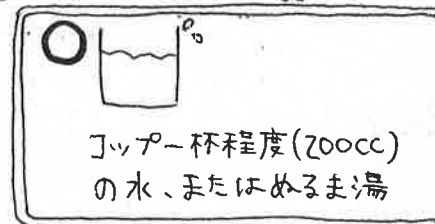 コップ一杯程度(200cc)
の水、またはぬるま湯